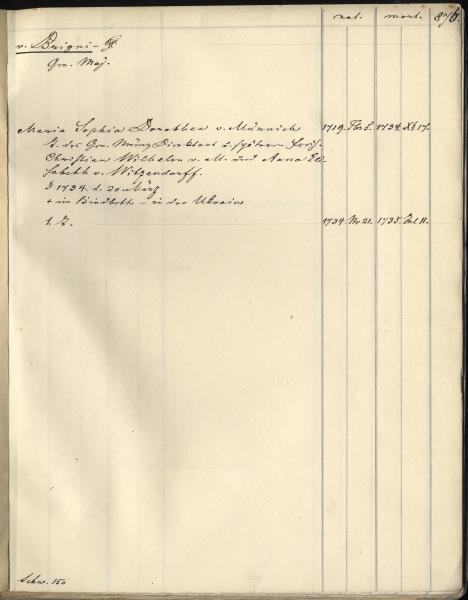 nat. mort. 876.
v. Brigni
Gen. Maj.
Maria Sophia Dorothea v. Münnich 1719. Fbr 5. 1734. Xb 17.
T. des Gen. Münz Direktors u. spätern
Christian Wilhelm v. M. und Anna Eli-
sabeth v. Witzendorff.
1734. d. 20 März
+ im Kindbette - in der Ukraine
1. T. 1734. Nr 21. 1735. Jul 11.
Schw. 150